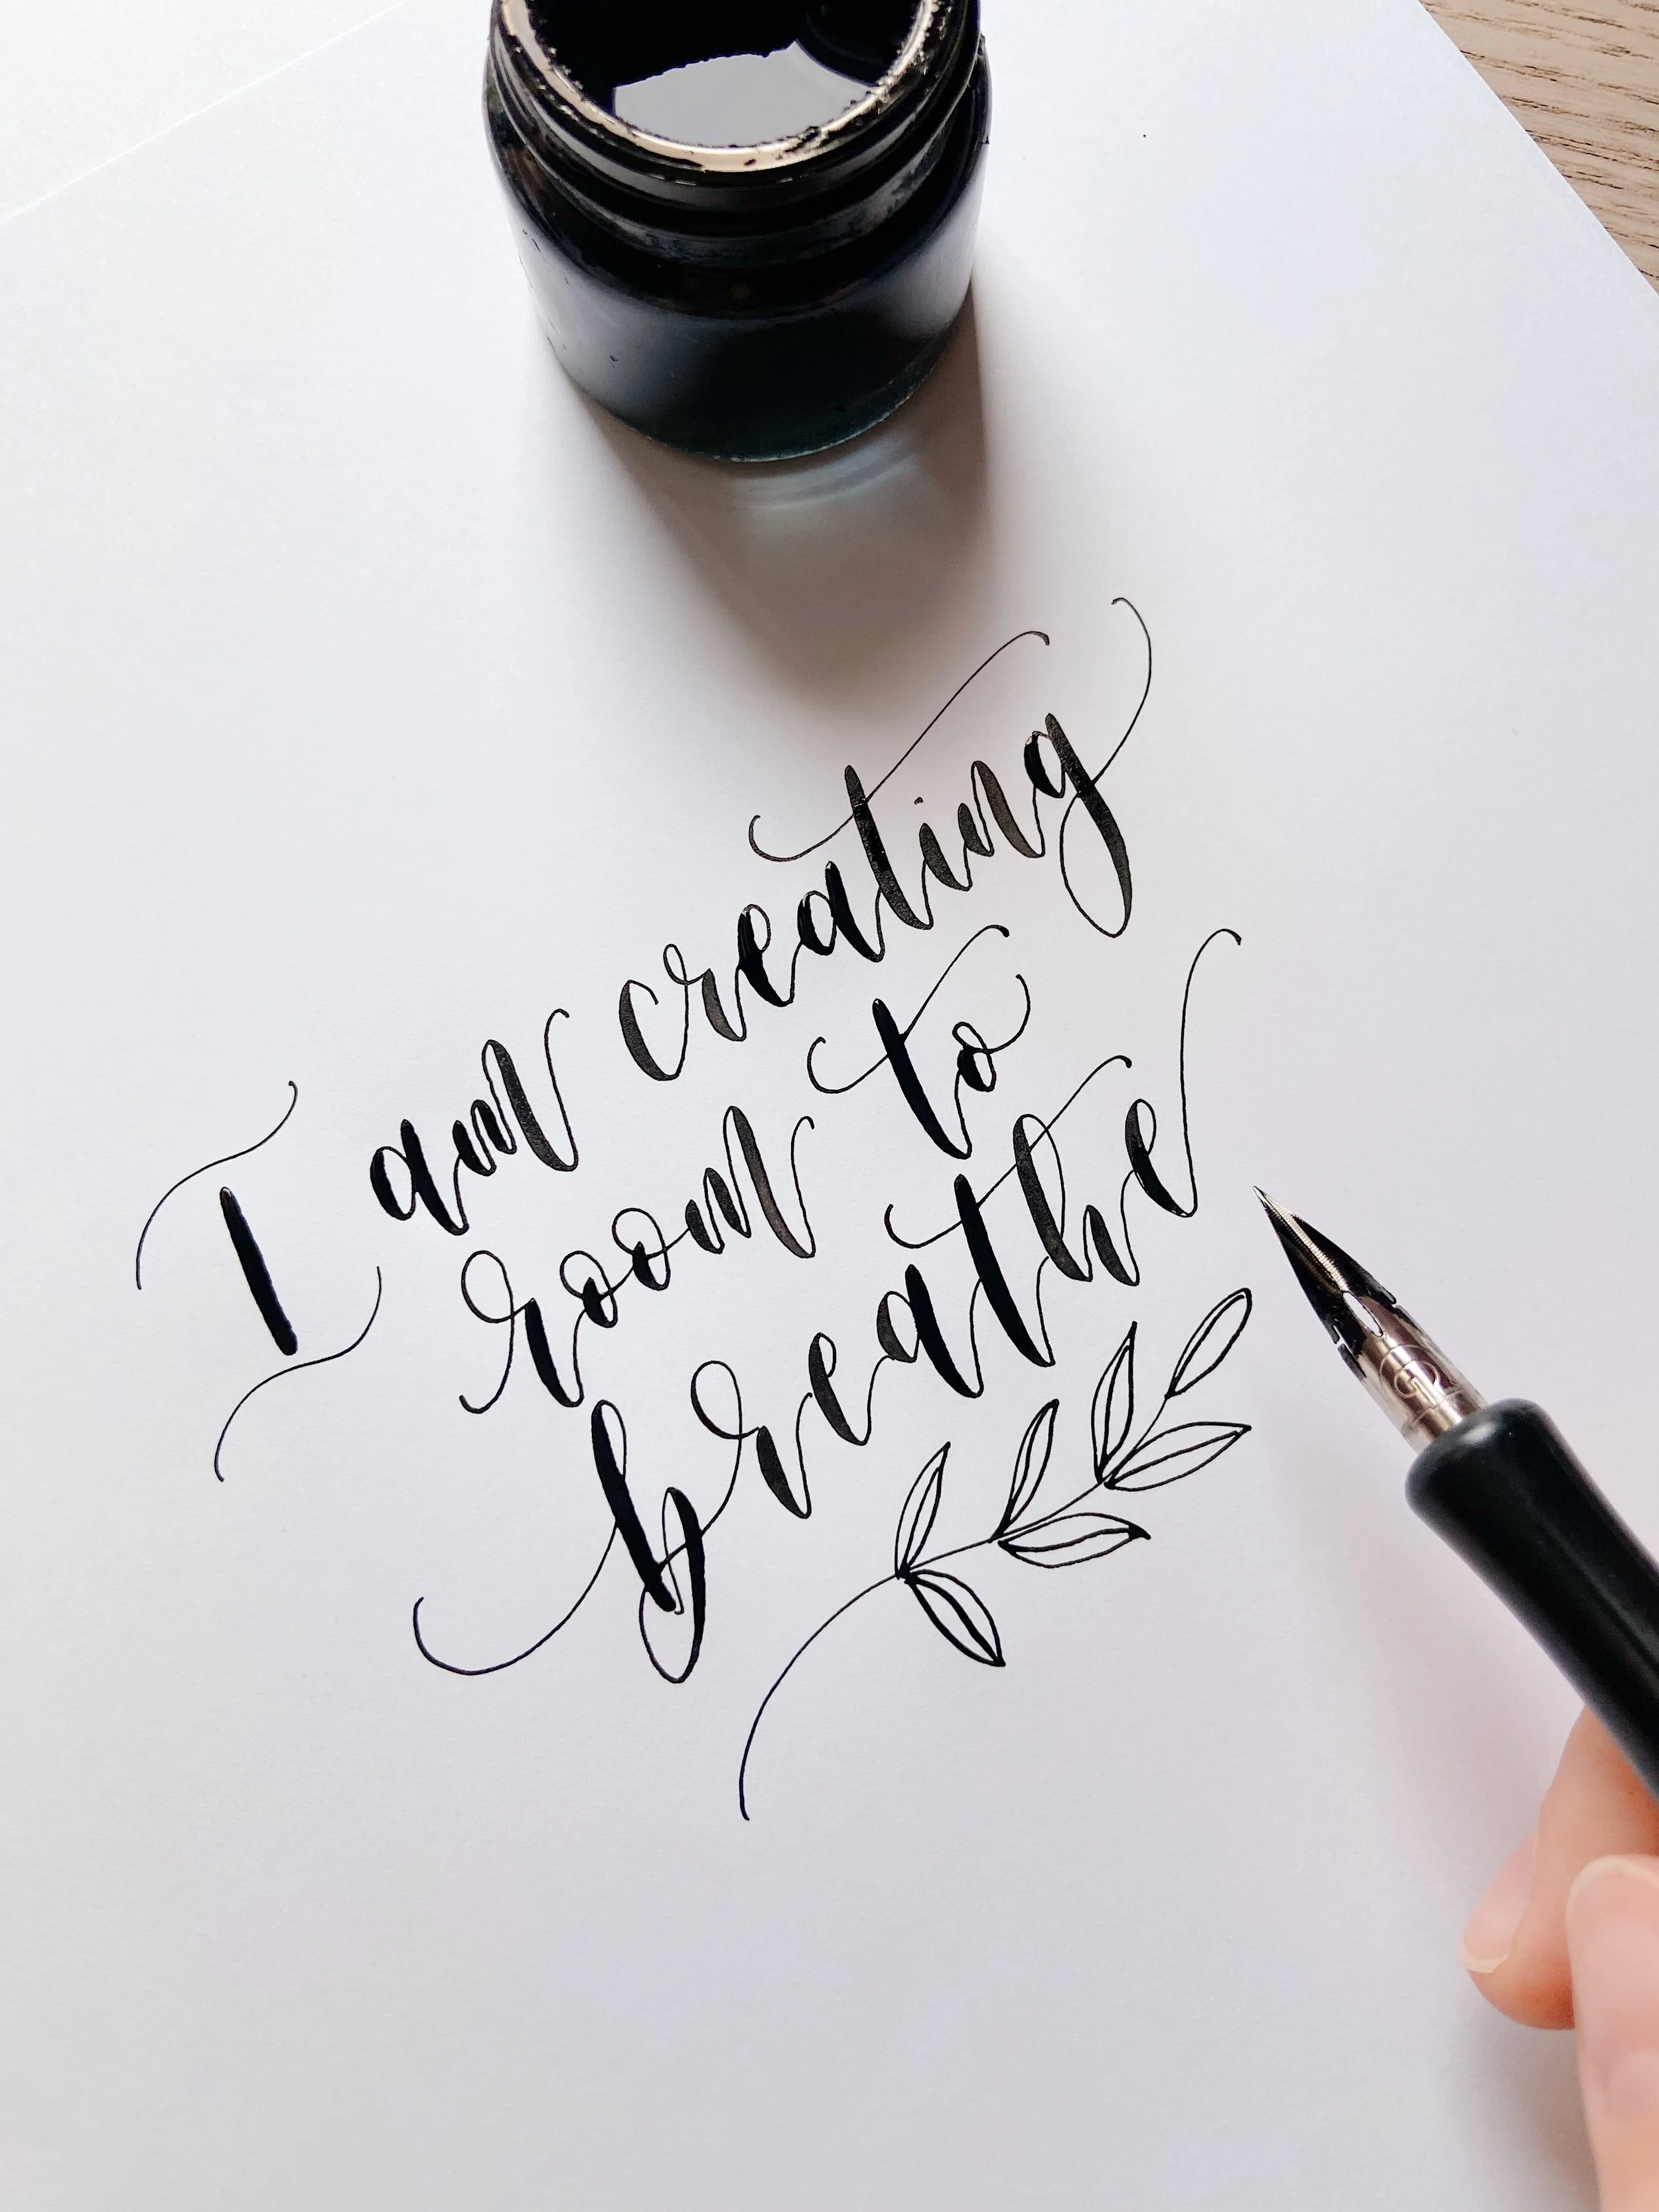 I am creating
room to
breathe